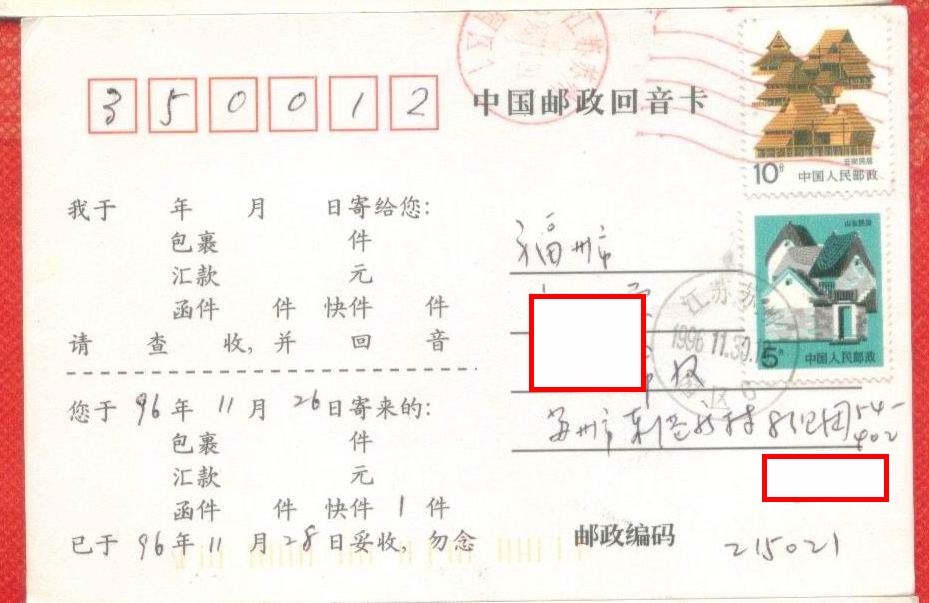 350012
中国邮政回音卡
云南民居
10分 中国人民邮政
山东民居
5分 中国人民邮政
我于 年 月 日寄给您:
包裹 件
汇款 元
函件 件 快件 件
请 查 收, 并 回 音
您于 96 年 11 月 26 日寄来的:
包裹 件
汇款 元
函件 件 快件 1 件
已于 96 年 11 月 28 日妥收, 勿念
福州市
江苏 苏
1996.11.30.
6
苏州市
54-
402
邮政编码 215021
江苏